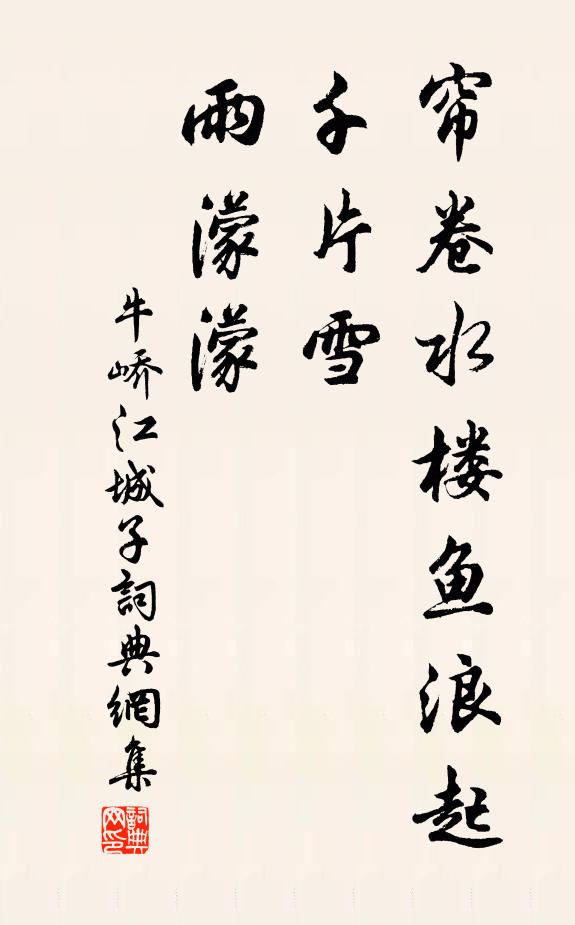 帘卷水楼鱼浪起
千片雪
雨濛濛
牛峤江城子詞典網集
詞典网印